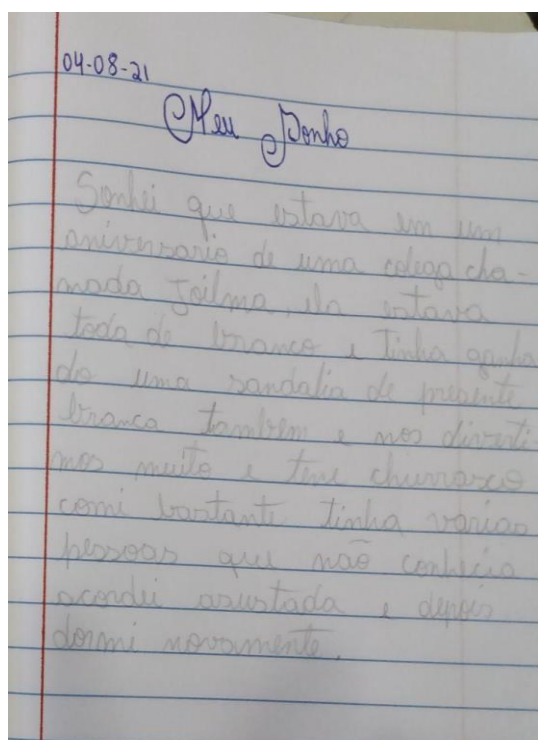 04-08-21
Meu Sonho
Sonhei que estava em um
aniversario de uma colega cha-
mada Joilma, ela estava
toda de branco e tinha ganha
do uma sandalia de presente
branca tambem e nos diverti-
mos muito e teve churrasco
comi bastante tinha varias
pessoas que não conhecia
acordei asustada e depois
dormi novamente.